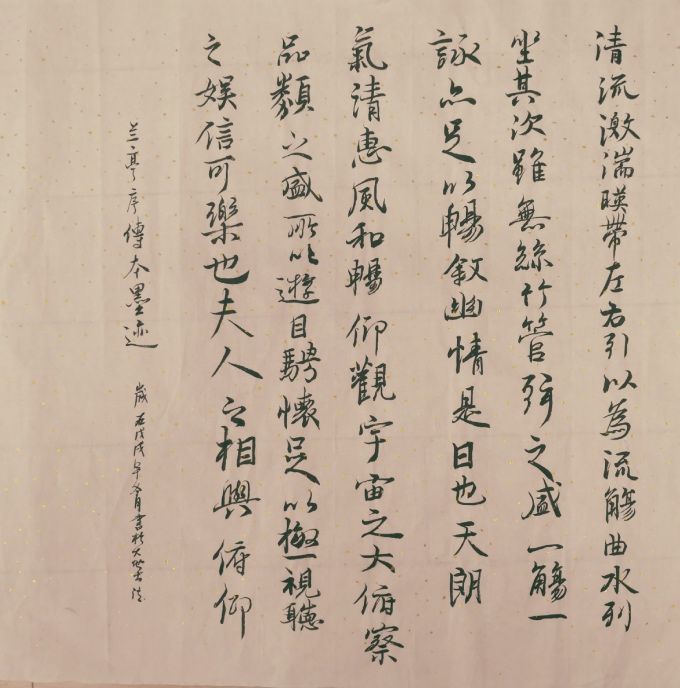 清流激湍暎帶左右引以為流觴曲水列
坐其次雖無絲竹管弦之盛一觴一
詠亦足以暢敘幽情是日也天朗
氣清惠風和暢仰觀宇宙之大俯察
品類之盛所以遊目騁懷足以極視聽
之娛信可樂也夫人之相與俯仰
兰亭序傳本墨迹
歲在戊戌年冬月書於大